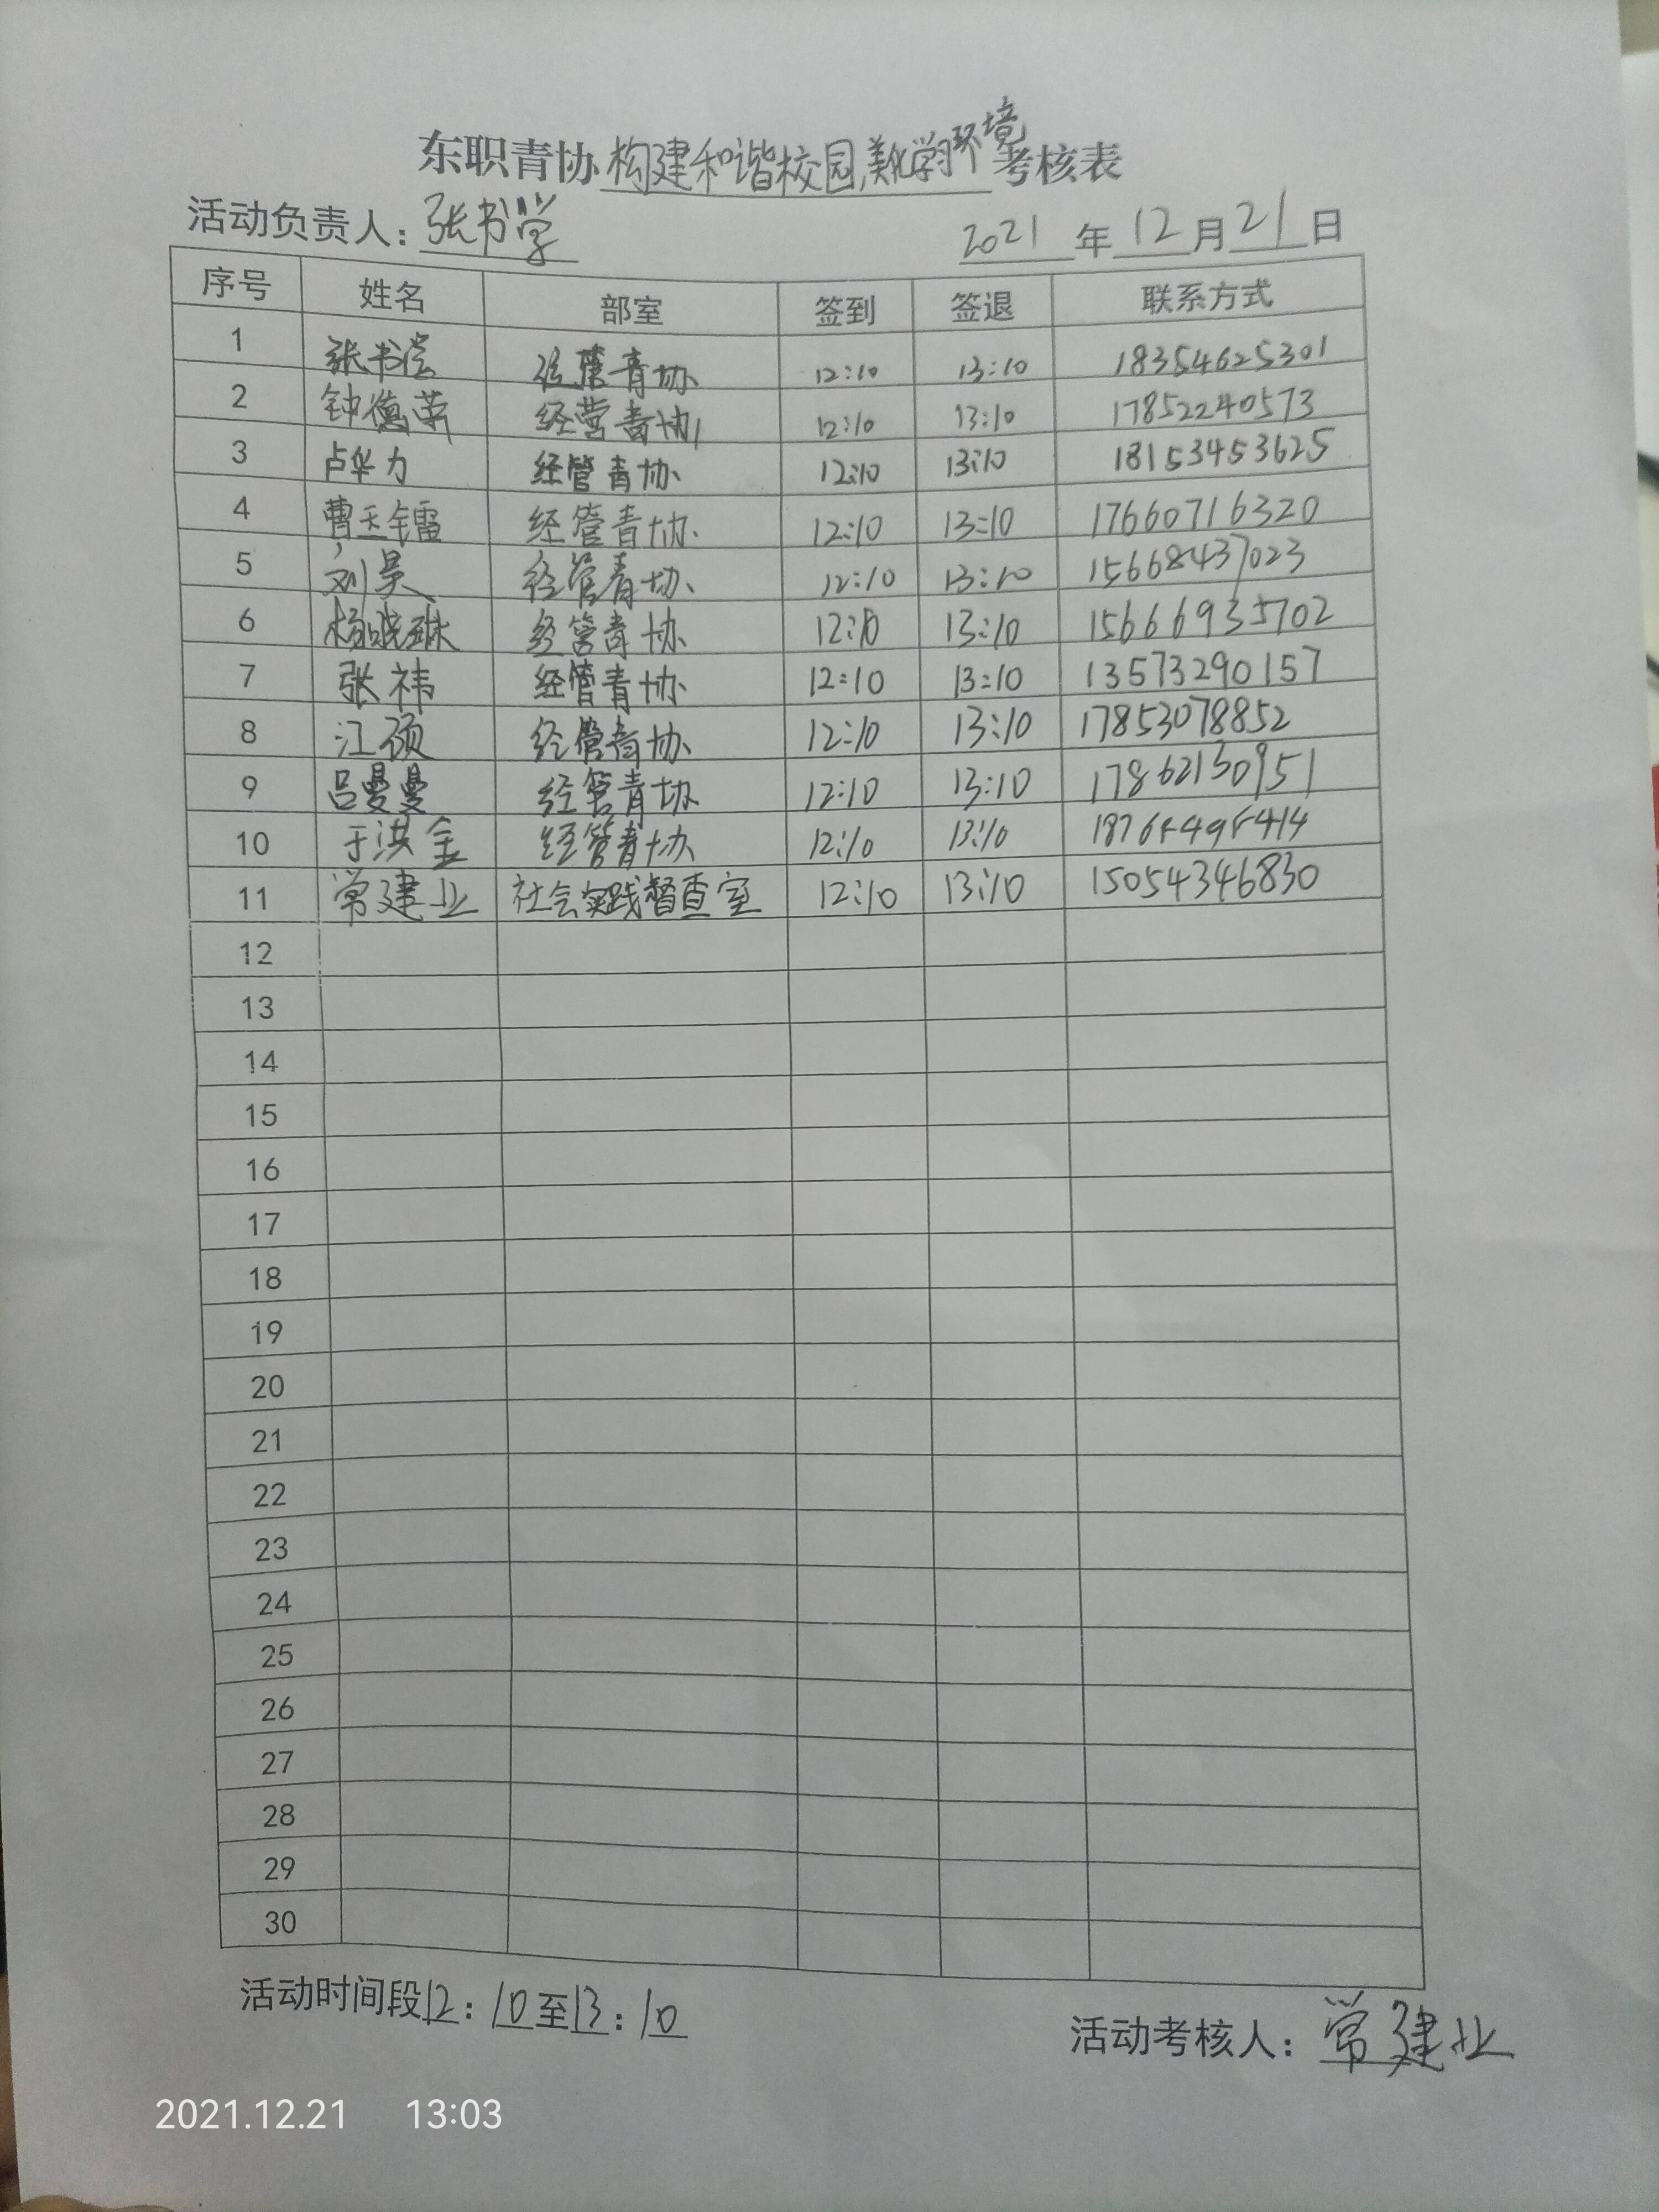 东职青协构建和谐校园,美化学习环境考核表
活动负责人：张书学 2021年12月21日
序号 姓名 部室 签到 签退 联系方式
1 张书学 经管青协 12:10 13:10 18354625301
2 钟德荣 经营青协 12:10 13:10 17852240573
3 卢华力 经管青协 12:10 13:10 18153453625
4 曹玉镭 经管青协 12:10 13:10 17660716320
5 刘昊 经管青协 12:10 13:10 15668437023
6 杨晓琳 经营青协 12:10 13:10 15666935702
7 张祎 经管青协 12:10 13:10 13573290157
8 江硕 经管青协 12:10 13:10 17853078852
9 吕曼曼 经管青协 12:10 13:10 17862130951
10 于洪金 经管青协 12:10 13:10
11 常建业 社会实践督查室 12:10 13:10 15054346830
12
13
14
15
16
17
18
19
20
21
22
23
24
25
26
27
28
29
30
活动时间段12：10至13：10
活动考核人：常建业
2021.12.21 13:03